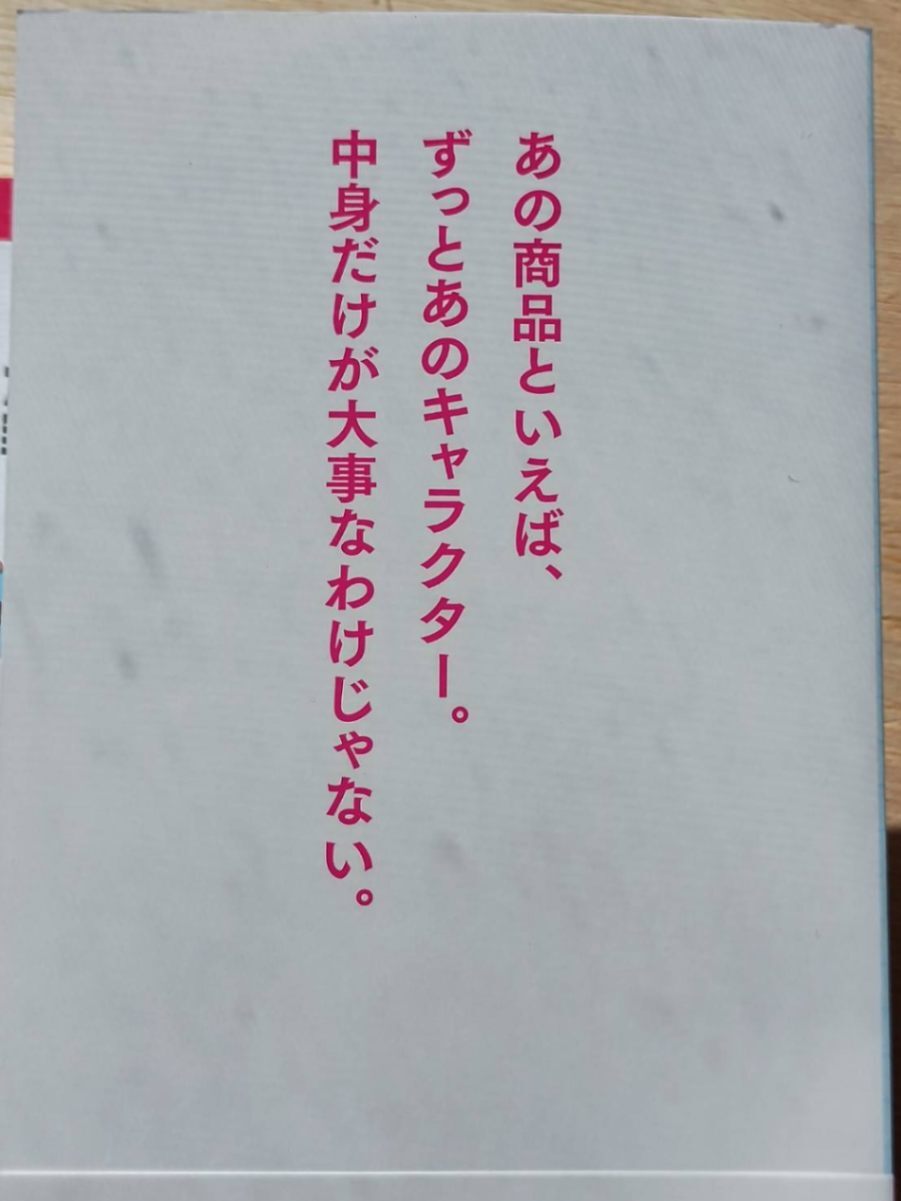 あの商品といえば、
ずっとあのキャラクター。
中身だけが大事なわけじゃない。